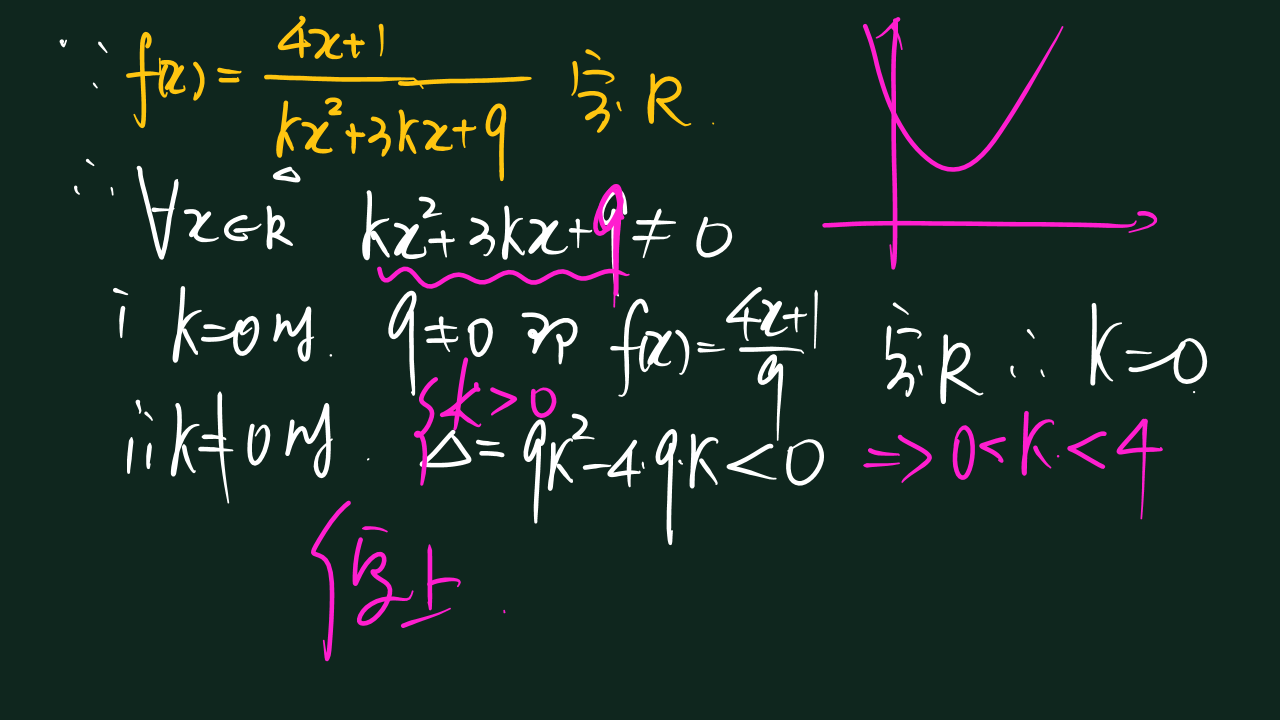 ∵ f(x) = (4x+1)/(kx²+3kx+9) R.
∴ ∀x∈R kx²+3kx+9 ≠ 0
i k=0时. 9≠0 即 f(x) = (4x+1)/9 R ∴ k=0
ii k≠0时. { k>0
Δ = 9k²-4·9·k<0 ⇒ 0<k<4